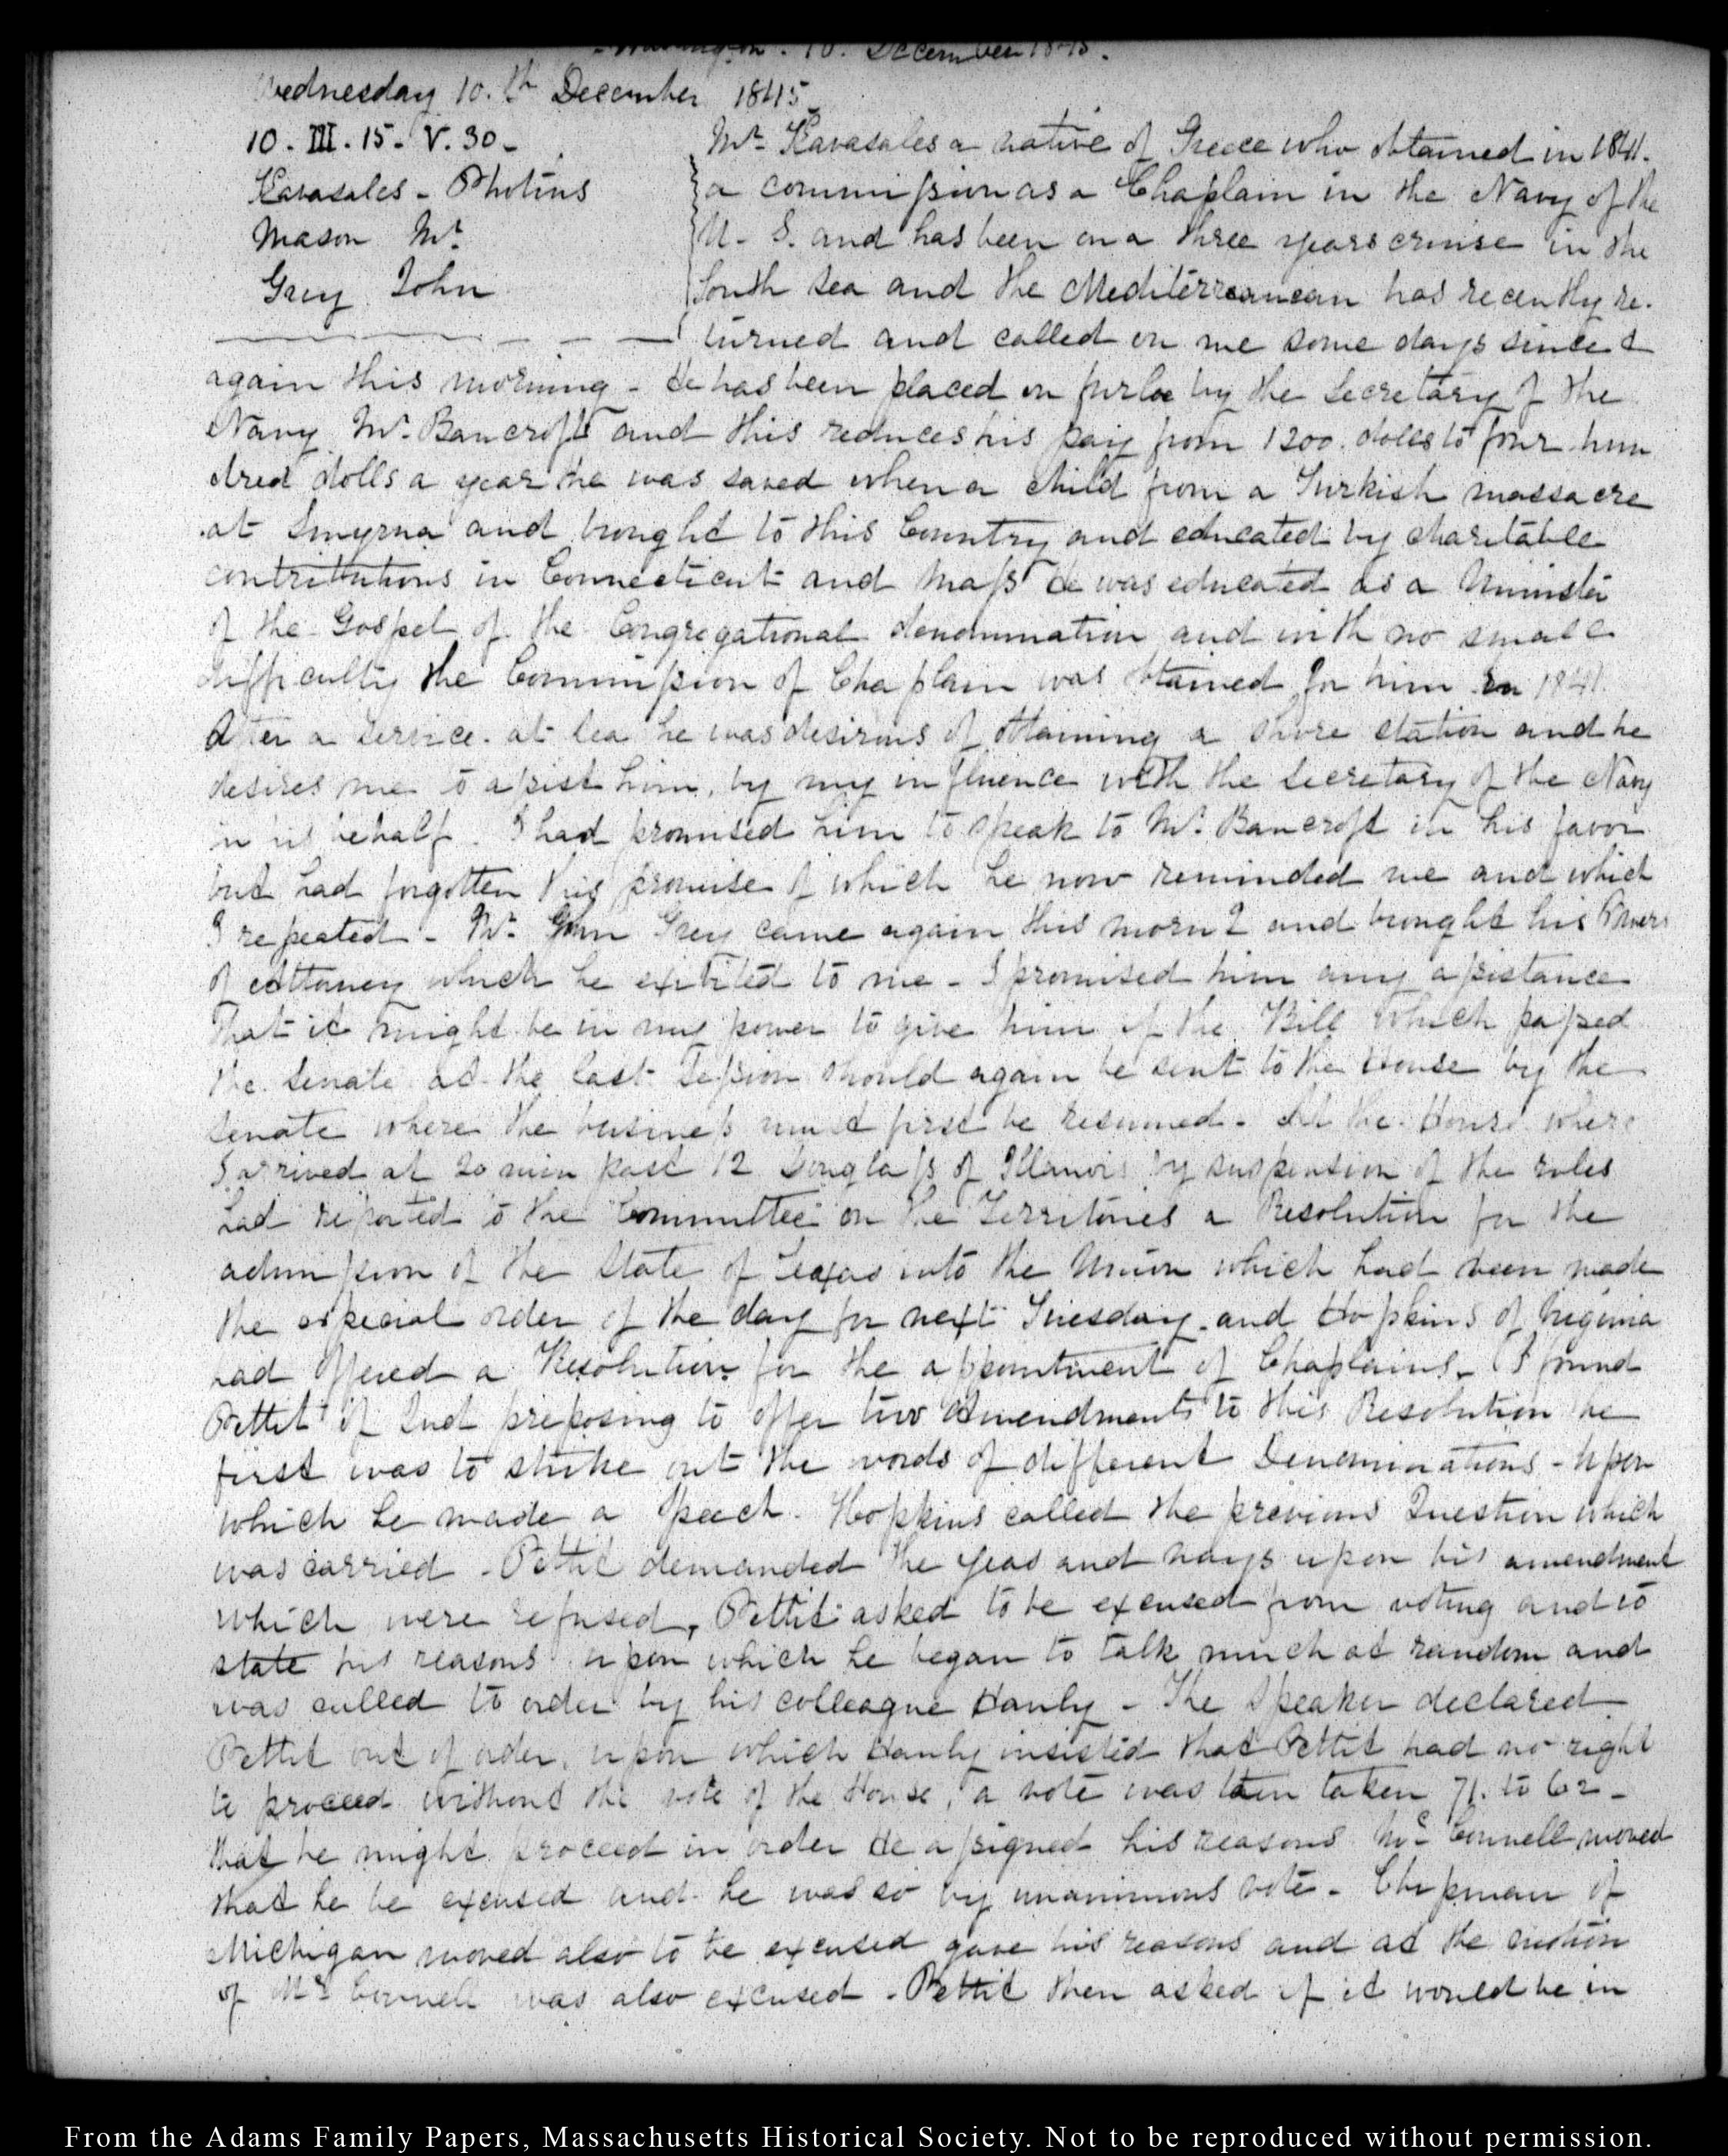 Washington. 10. December 1845.
Wednesday 10.th December 1845
10. III. 15. V. 30.
Kavasales - Photius
Mason Mr.
Grey John
Mr. Kavasales a native of Greece who obtained in 1841.
a commission as a Chaplain in the Navy of the
U. S. and has been on a three years cruise in the
South Sea and the Mediterranean has recently re-
turned and called on me some days since &
again this morning - He has been placed on furloe by the Secretary of the
Navy Mr. Bancroft and this reduces his pay from 1200. dolls to four hun
dred dolls a year he was saved when a child from a Turkish massacre
at Smyrna and brought to this Country and educated by charitable
contributions in Connecticut and Mass He was educated as a Minister
of the Gospel of the Congregational denomination and with no small
difficulty the Commission of Chaplain was obtained for him in 1841.
After a service at sea he was desirous of obtaining a shore station and he
desires me to assist him, by my influence with the Secretary of the Navy
in his behalf. I had promised him to speak to Mr. Bancroft in his favor
but had forgotten this promise of which he now reminded me and which
I repeated - Mr. John Grey came again this morng and brought his Powers
of Attorney which he exhibited to me - I promised him any assistance
that it might be in my power to give him if the Bill which passed
the Senate at the last Session should again be sent to the House by the
Senate where the business must first be resumed. At the House where
I arrived at 20 min past 12 Douglass of Illinois by suspension of the rules
had reported to the Committee on the Territories a Resolution for the
admission of the State of Texas into the Union which had been made
the especial order of the day for next Tuesday and Hopkins of Virginia
had offered a Resolution for the appointment of Chaplains - I found
Pettit of Ind preposing to offer two Amendments to this Resolution the
first was to strike out the words of different Denominations - Upon
which he made a Speech. Hopkins called the previous Question which
was carried - Pettit demanded the yeas and nays upon his amendment
which were refused, Pettit asked to be excused from voting and to
state his reasons upon which he began to talk much at random and
was called to order by his colleague - The Speaker declared
Pettit out of order, upon which insisted that Pettit had no right
to proceed without the vote of the House, a vote was then taken 71. to 62 -
that he might proceed in order He assigned his reasons Mc. Connell moved
that he be excused and he was so by unanimous vote - Chipman of
Michigan moved also to be excused gave his reasons and at the motion
of Mc Connell was also excused - Pettit then asked if it would be in
From the Adams Family Papers, Massachusetts Historical Society. Not to be reproduced without permission.